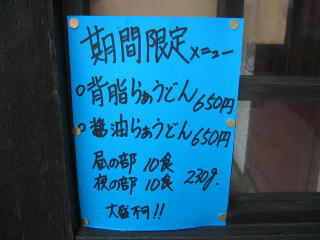 期間限定メニュー
○背脂らぁうどん 650円
○醤油らぁうどん 650円
昼の部 10食
夜の部 10食 230g.
大盛不可!!